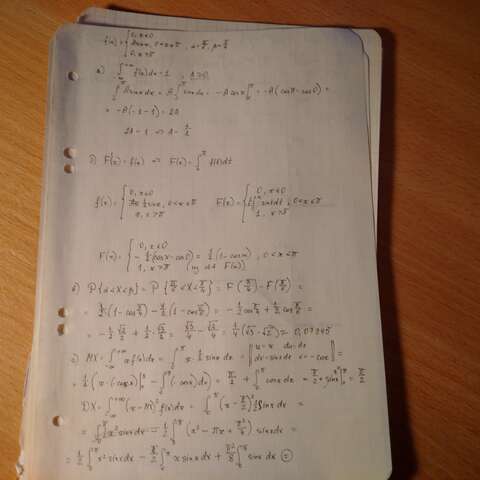 f(x) = { 0, x≤0
A sin x, 0<x≤π , α=π/6, β=π/4
0, x>π
а) ∫_{-∞}^{+∞} f(x)dx = 1 , A>0
∫_0^π A sin x dx = A ∫_0^π sin x dx = -A cos x |_0^π = -A(cos π - cos 0) =
= -A(-1-1) = 2A
2A = 1 => A = 1/2
F'(x) = f(x) => F(x) = ∫ f(t)dt
f(x) = { 0, x≤0
1/2 sin x, 0<x≤π
F(x) = { 0, x≤0
sin t dt, 0<x≤π
1, x>π
F(x) = { 0, x≤0
-1/2 (cos x - cos 0) = 1/2 (1-cos x), 0<x≤π
1, x>π
в) P{α<X<β} = P{π/6<X<π/4} = F(π/4) - F(π/6) =
= 1/2 (1-cos π/4) - 1/2 (1-cos π/6) = -1/2 cos π/4 + 1/2 cos π/6 =
= -1/2 · √2/2 + 1/2 · √3/2 = √3/4 - √2/4 = 1/4 (√3-√2) ≈ 0,07945
г) MX = ∫_{-∞}^{+∞} x f(x)dx = ∫_0^π x · 1/2 sin x dx = || u=x du=dx
dv=sin x dx v=-cos x || =
= 1/2 (x·(-cos x)|_0^π - ∫_0^π (-cos x)dx) = π/2 + ∫_0^π cos x dx = π/2 + sin x |_0^π = π/2
DX = ∫_{-∞}^{+∞} (x-MX)² f(x)dx = ∫_0^π (x - π/2)² 1/2 sin x dx =
= 1/2 ∫_0^π (x² - πx + π²/4) sin x dx =
= 1/2 ∫_0^π x² sin x dx - π/2 ∫_0^π x sin x dx + π²/8 ∫_0^π sin x dx =